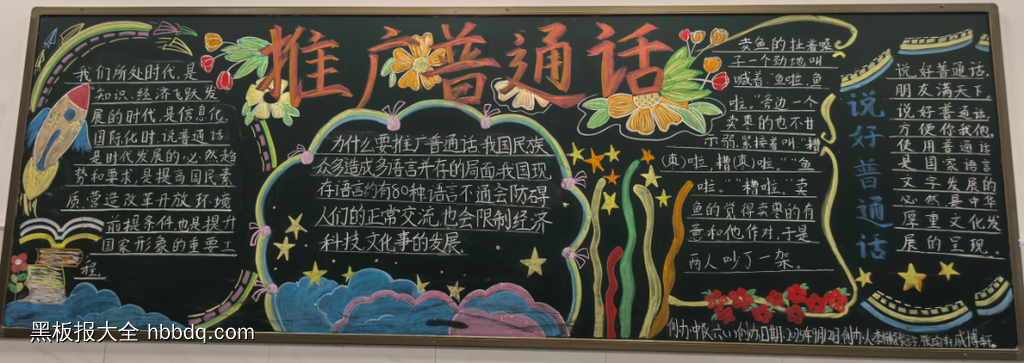 推广普通话
我们所处时代,是
"知识、经济飞跃发
展的时代,是信息化、
国际化时,说普通话
是时代发展的必然趋
势和要求,是提高国民素
质,营造改革开放环境
前提条件,也是提升
国家形象的重要工
程.
为什么要推广普通话,我国民族
众多造成多语言并存的局面,我国现
存语言约有80种,语言不通会防碍
人们的正常交流,也会限制经济
科技,文化事的发展.
卖鱼的扯着嗓
子一个劲地叫
喊着"鱼啦,鱼
啦。"旁边一个
卖枣的也不甘
示弱,紧接着叫"糟
(枣)啦,糟(枣)啦。""鱼
啦。""糟啦。"卖
鱼的觉得卖枣的有
意和他作对,于是
两人吵了一架。
说好普通话
说好普通话,
朋友满天下
说好普通话,
方便你我他,
使用普通话
是国家语言
文字发展的
必然是中华
厚重文化发
展的呈现.
黑板报大全 hbbdq.com